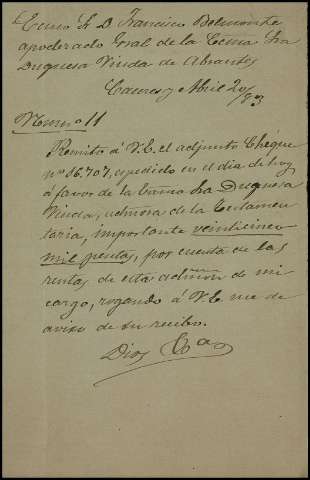 Excmo Sr D. Francisco Belmonte
apoderado Gral de la Excma Sra
Duquesa Viuda de Abrantes
Caceres y Abril 20/83
Numo 11
Remito á V.E. el adjunto Chéque
nº 86.707, espedido en el dia de hoy
á favor de la Excma Sra Duquesa
Viuda, admora de la Testamen
taria, importante veinticinco
mil pesetas, por cuenta de las
rentas de esta admon de mi
cargo, rogando á V.E. me de
aviso de su recibo.
Dios &a